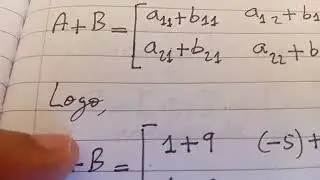 A+B = [a₁₁+b₁₁ a₁₂+b₁
a₂₁+b₂₁ a₂₂+b
Logo,
-B = [1+9 (-5)+